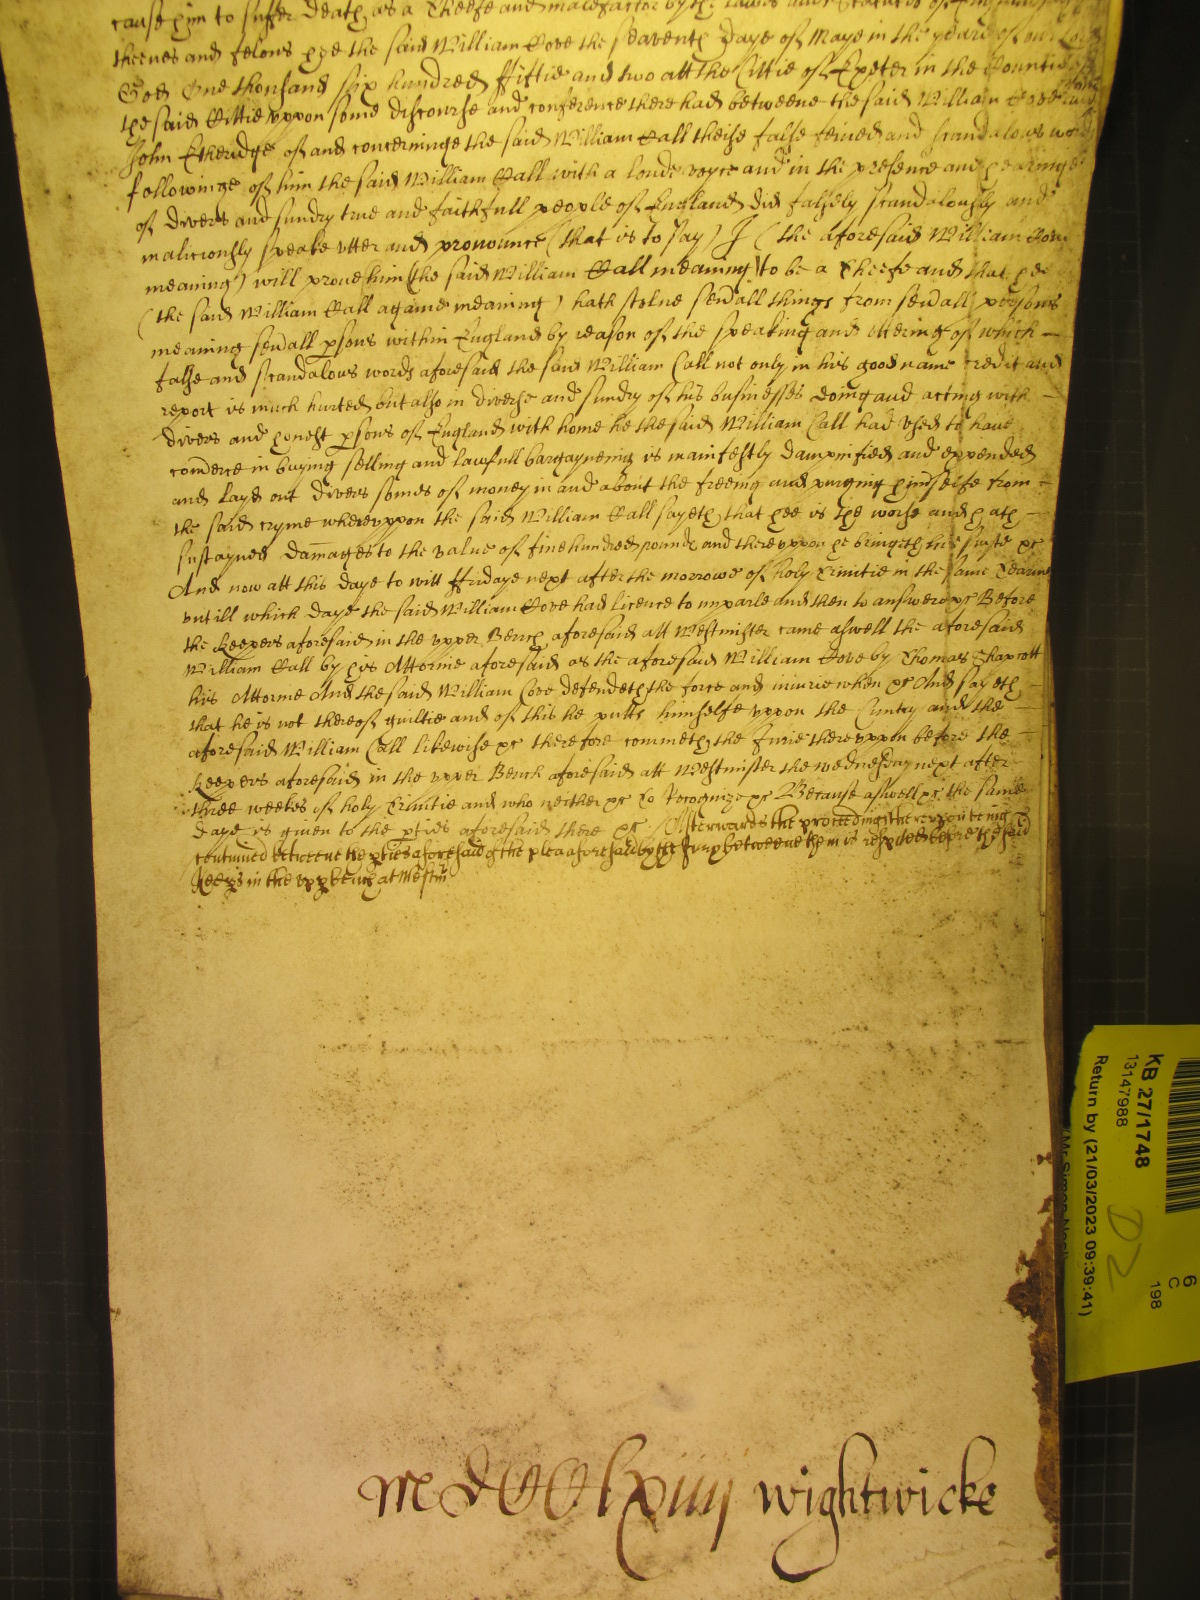 cause him to suffer death as a Theefe and malefactor by the lawes and Statutes of
theeves and felons hee the said William Cove the seaventh daye of Maye in the yeare of our Lord
God One thousand six hundred fiftie and two att the Cittie of Exeter in the Countie of
the said Cittie uppon some discourse and conference there had betweene the said William Cove and
John Etheridge of and concerninge the said William Call theise false feined and scandalous words
followinge of him the said William Call with a loude voyce and in the presence and hearinge
of divers and sundry true and faithfull people of England did falsely scandalously and
maliciously speake utter and pronounce (that is to say) I (the aforesaid William Cove
meaning) will prove him (the said William Call meaning) to be a Theefe and that hee
(the said William Call againe meaning) hath stolne sevall things from sevall persons
meaning sevall psons within England by reason of the speaking and uttering of which
false and scandalous words aforesaid the said William Call not only in his good name credit and
report is much hurted but also in diverse and sundry of his businesses doing and acting with
divers and honest psons of England with home he the said William Call had used to have
comerce in buying selling and lawfull bargayneing is manifestly dampnified and expended
and layd out divers somes of money in and about the freeing and purging himselfe from
the said cryme whereuppon the said William Call sayeth that hee is the worse and hath
sustayned damages to the value of five hundred pounds and thereuppon he bringeth his suyte &c
And now att this daye to witt Frydaye next after the morrowe of holy Trinitie in the same Tearme
untill which daye the said William Cove had licence to imparle and then to answere &c Before
the keepers aforesaid in the upper Bench aforesaid att Westmister came aswell the aforesaid
William Call by his Attornie aforesaid as the aforesaid William Cove by Thomas Shapcott
his Attornie And the said William Cove defendeth the force and iniurie when &c And sayeth
that he is not thereof guiltie and of this he putts himselfe uppon the Cuntry and the
aforesaid William Call likewise &c therefore commeth the Jurie thereuppon before the
keepers aforesaid in the upper Bench aforesaid att Westmister the wednesday next after
three weekes of holy Trinitie and who neither &c To Recognize &c Because aswell &c the same
daye is given to the pties aforesaid there &c Afterwards the proceedings thereuppon being
continued betweene the pties aforesaid of the plea aforesaid by the Jury betweene them is respited before the said
keeps in the upp bench at Westm
MDCClxiiij wightwicke
KB 27/1748
13147988
Return by (21/03/2023 09:39:41)
D2
6
C
198